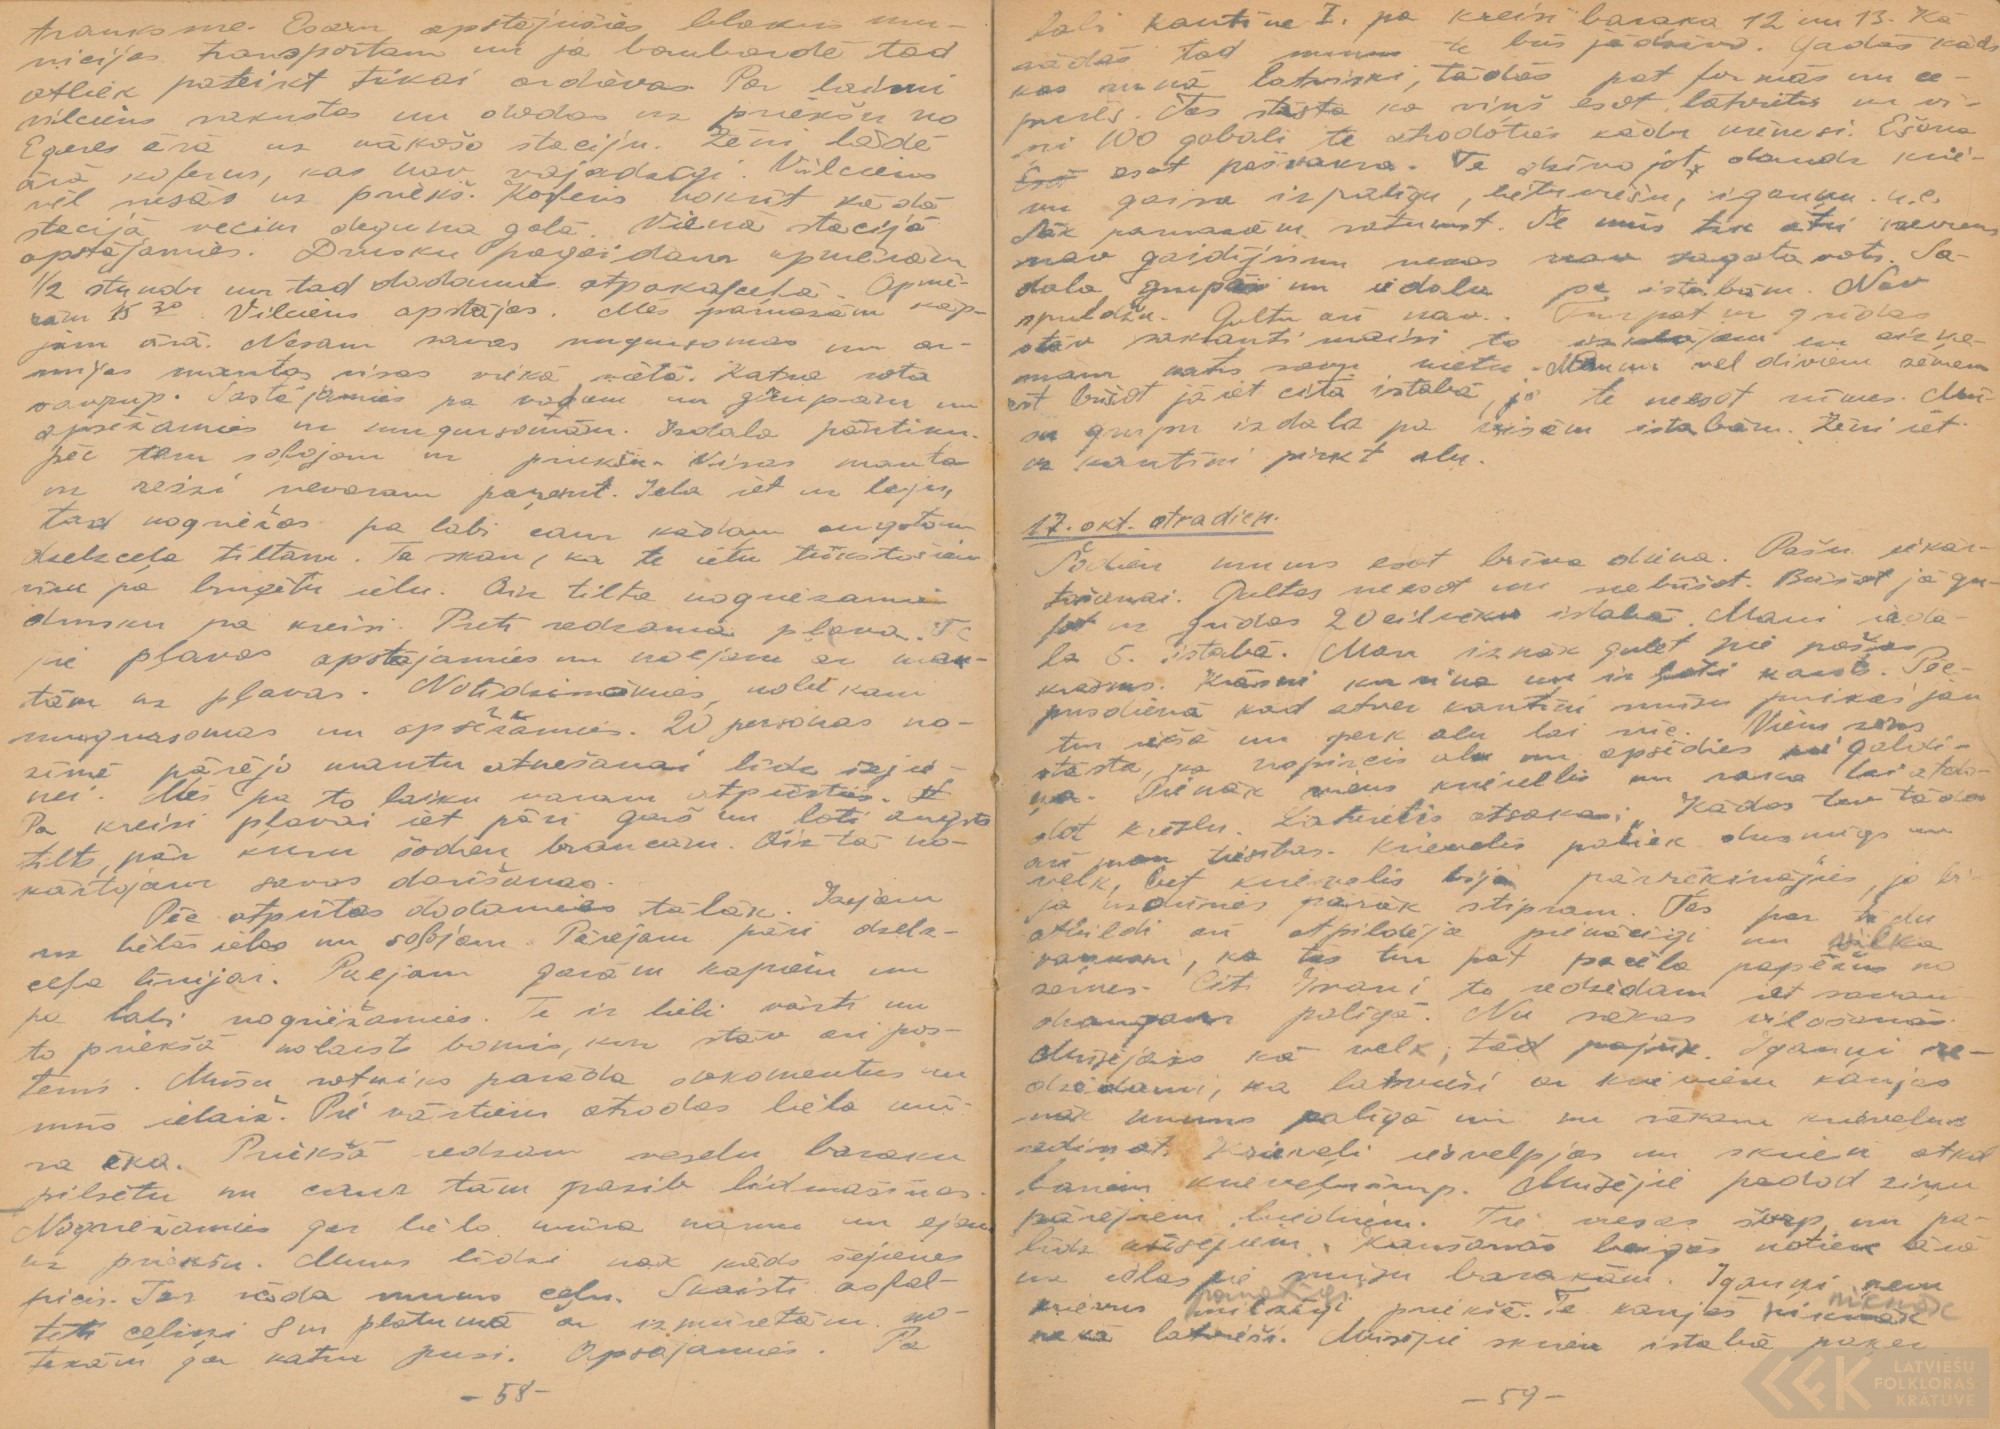 trauksme. Esam apstājušies blakus mu-
nicijas transportam un ja bombardē tad
atliek pateikt tikai ardievas. Par laimi
vilciens sakustas un dodas uz priekšu no
Egeres ārā uz nākošo staciju. Zēni lādē
ārā koferus, kas nav vajadzīgi. Vilciens
vēl nesās uz priekš. Koferis nokrīt kādā
stacijā vecim deguna galā. Vienā stacijā
apstājamies. Drusku pagaidam apmēram
1/2 stundu un tad dodamies atpakaļceļā. Apmē-
ram 15 30. Vilciens apstājas. Mēs pamazām kāp-
jam ārā. Nesam savas mugursomas un ar-
mijas mantas visas vienā vietā. Katra rota
savrup. Sastājamies pa vadam un grupām un
apsēžamies uz mugursomām. Izdala pārtiku.
pēc tam soļojam uz priekšu. Visas mantas
uz reizi nevaram paņemt. Iela iet uz leju,
tad nogriežas pa labi caur kādam augstam
dzelzceļa tiltam. Ta skan, ka te ietu tūkstošiem
viņu pa bruģētu ielu. Aiz tilta nogriežamies
drusku pa kreisi. Preti redzama pļava. Te
pie pļavas apstājamies un noejam ar man-
tām uz pļavas. Nolidzināmies, noliekam
mugursomas un apsēžamies. 20 personas no-
zīmē pārējo mantu atnešanai līdz izeju-
nei. Mēs pa to laiku varam atpūsties.
Pa kreisi pļavai iet pāri garš un ļoti augsts
tilts, pār kuru šodien braucam. Aiz tā no-
kārtojam savas darīšanas.
Pēc atpūtas dodamies tālāk. Izejam
uz lielās ielas un soļojam. Pārejam pāri dzelz-
ceļa līnijai. Paejam garām kapiem un
pa labi nogriežamies. Te ir lieli vārti un
to priekšā nolaists bomis, kur stāv arī pos-
tenis. Mūsu rotnieks parāda dokumentus un
mūs ielaiž. Pie vārtiem atrodas liela mū-
ra ēka. Priekšā redzam veselu baraku
pilsētu un caur tām pazib lidmašīnas.
Nogriežamies gar lielo mūra namu un ejam
uz priekšu. Mums līdzi nāk kāds šejienes
picis. Tas rāda mums ceļu. Skaisti asfal-
tēti celiņi 8m platumā ar izmūrētām no-
tekām gar katru pusi. Apstājamies. Pa
-58-
labi kantīne I. pa kreisi baraka 12 un 13. Kā
rādās tad mums te būs jādzīvo. Gadās kāds
kas runā latviski, tādās pat formās un ce-
purēs. Tas stāsta ka viņš esot latvietis un vi-
ņi 100 gabali te atrodoties kādu mēnesi. Ešana
esot pašvakra. Te dzīvojot daudz krie-
vu gaisa izpalīgu, lietuviešu, igauņu u.c.
Sāk pamazām satumst. Te mūs tik ātri
nav gaidījuši nekas nav sagatavots. Sa-
dala grupās un iedala pa istabām. Nav
spuldžu. Gultu arī nav. Turpat uz grīdas
stāv saklauti maisi to izklājam un aizņe-
mam katrs savu vietu. Man un vēl diviem zēniem
būšot jāiet citā istabā, jo te neesot rūmes. Mū-
su grupu izdala pa visām istabām. Zēni iet
uz kantīni pirkt alu.
17. okt. otradien.
Šodien mums esot brīva diena. Pašu iekār-
tošanai. Gultas neesot un nebūšot. Būšot jāgu-
ļot uz grīdas 20 cilvēku istabā. Mani ieda-
la 5. istabā. Man iznāk gulēt pie pašas
krāsns. Krāsni kurina un ir ļoti karsts. Pēc-
pusdienā kad atver kantīni mūsu puikas jau
tur iekšā un perk alu lai vie. Viens zēns
stāsta, ka nopircis alu un apsēdies pie galdi-
ņa. Pienāk viens krievelis un saka lai atdo-
dot krēslu. Latvietis atsaka: Kādas tev tādas
arī man tiesības. Krievelis paliek dusmīgs un
velk, bet krievelis bija pārrēķinājies, jo bi-
ja uzdūries pārāk stipram. Tas par tādu
atbildi arī atpildēja pienācīgi un vilka
vaņņani, ka tas tur pat pacēla papēžus no
zemes. Citi Ivani to redzēdami iet savam
draugam palīgā. Nu sākas vilošanās.
Mūsējais kā velk, tād pajūk. Igauņi re-
dzēdami, ka latvieši ar krieviem kaujas
nāk mums palīgā un nu sākam krieveļus
zedināt. Krieveļi iesvelpjas un skrien atkal
bariem krieveļu šurp. Mūsējie padod ziņu
pārējiem biedriem. Tie vesas šurp un pa-
līdz mūsējiem. Kaušanās beigās notiek ārā
uz ielas pie mūsu barakām. Igauņi ņem
krievus milzīgi priekšā. Te kaujas niknāk
nekā latvieši. Mūsējie skrien istabā pakaļ
-59-
LATVIEŠU
FOLKLORAS
KRĀTUVE